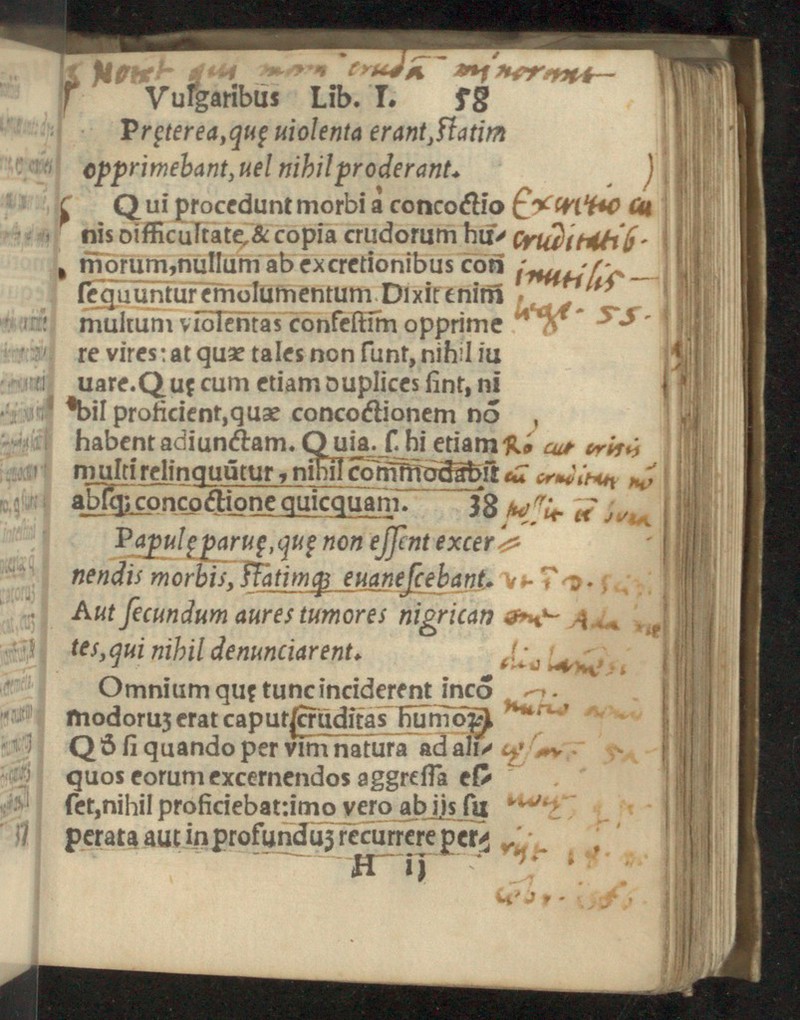 Vulgaribus Lib. I. 58
Pręterea, quę uiolenta erant, ſtatim
opprimebant, uel nihil proderant.
Qui procedunt morbi à concoctio
nis difficultate, & copia crudorum hu⸗
morum, nullum ab excretionibus con
ſequuntur emolumentum. Dixit enim̄
multum violentas confeſtim opprime
re vires: at quæ tales non ſunt, nihil iu
uare. Quę cum etiam duplices ſint, ni
hil proficient, quæ concoctionem nō
habent adiunctam. Quia. ſ. hi etiam
multi relinquūtur, nihil commodabit
abſq; concoctione quicquam. 38
Papulę paruę, quę non eſſent excer
nendis morbis, ſtatimq; euaneſcebant.
Aut ſecundum aures tumores nigrican
tes, qui nihil denunciarent.
Omnium quę tunc inciderent incō
modoruꝫ erat caput (cruditas humoꝝ).
Qđ ſi quando per vim natura ad ali⸗
quos eorum excernendos aggreſſa eſ⸗
ſet, nihil proficiebat: imo vero ab ijs ſu
perata aut in profunduꝫ recurrere per⸗
H ij
Excretio cū
cruditatib.
inutilis
55.